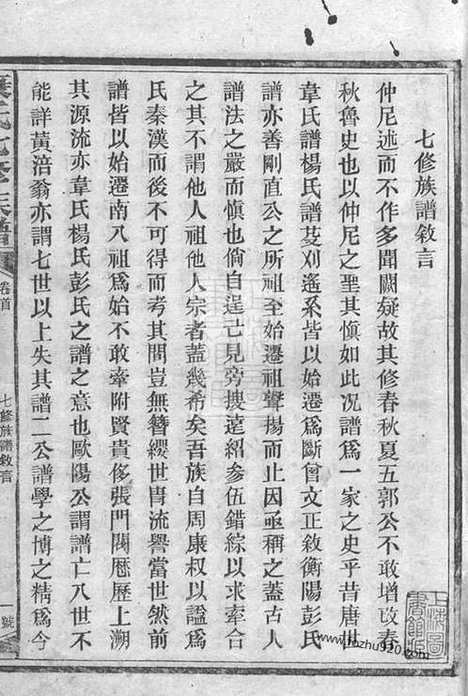 七修族譜敘言
仲尼述而不作多聞闕疑故其修春秋夏五郭公不敢增改春
秋魯史也以仲尼之聖其慎如此况譜爲一家之史乎昔唐世
韋氏譜楊氏譜芟刈遙系皆以始遷爲斷曾文正敘衡陽彭氏
譜亦善剛直公之所祖至始遷祖聲揚而止因亟稱之蓋古人
譜法之嚴而慎也倘自逞己見旁搜遠紹參伍錯綜以求牽合
之其不謂他人祖他人宗者蓋幾希矣吾族自周康叔以諡爲
氏秦漢而後不可得而詳考其間豈無簪纓世胄流譽當世然前
譜皆以始遷南八祖爲始不敢牽附賢貴侈張門閥歷歷上溯
其源流亦韋氏楊氏彭氏之譜之意也歐陽公謂譜亡八世不
能詳黃涪翁亦謂七世以上失其譜二公譜學之博之精爲今
卷首
七修族譜敘言
一號
上海圖書館藏
www.jiapu920.com